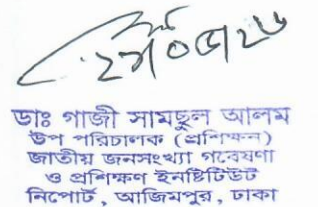 ডাঃ গাজী সামছুল আলম
উপ পরিচালক (প্রশিক্ষন)
জাতীয় জনসংখ্যা গবেষণা
ও প্রশিক্ষণ ইনষ্টিটিউট
নিপোর্ট, আজিমপুর, ঢাকা